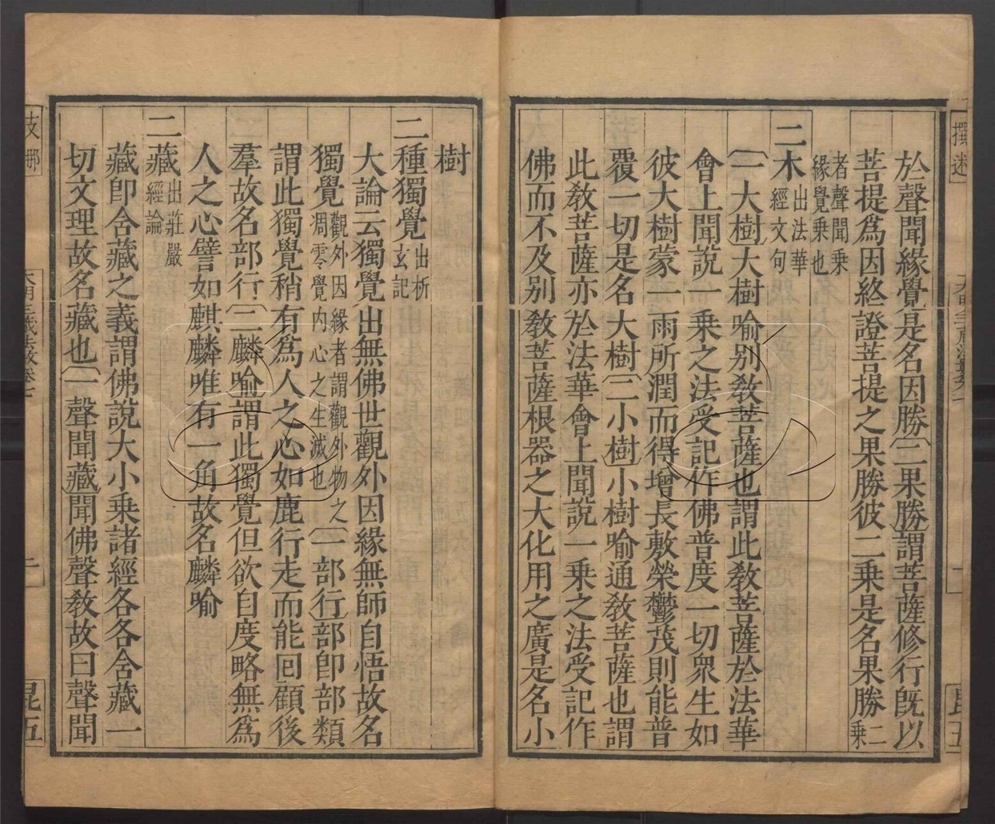 於聲聞緣覺是名因勝〔二果勝〕謂菩薩修行旣以
菩提爲因終證菩提之果勝彼二乘是名果勝二乘
者聲聞乘緣覺乘也
二木出法華經文句
〔一大樹〕大樹喻別教菩薩也謂此教菩薩於法華
會上聞說一乘之法受記作佛普度一切眾生如
彼大樹蒙一雨所潤而得增長敷榮鬱茂則能普
覆一切是名大樹〔二小樹〕小樹喻通教菩薩也謂
此教菩薩亦於法華會上聞說一乘之法受記作
佛而不及別教菩薩根器之大化用之廣是名小
樹
二種獨覺出析玄記
大論云獨覺出無佛世觀外因緣無師自悟故名
獨覺觀外因緣者謂觀外物之凋零覺內心之生滅也〔一部行〕部卽部類
謂此獨覺稍有爲人之心如鹿行走而能回顧後
羣故名部行〔二麟喻〕謂此獨覺但欲自度略無爲
人之心譬如麒麟唯有一角故名麟喻
二藏出莊嚴經論
藏卽含藏之義謂佛說大小乘諸經各各含藏一
切文理故名藏也〔一聲聞藏〕聞佛聲教故曰聲聞
昆五